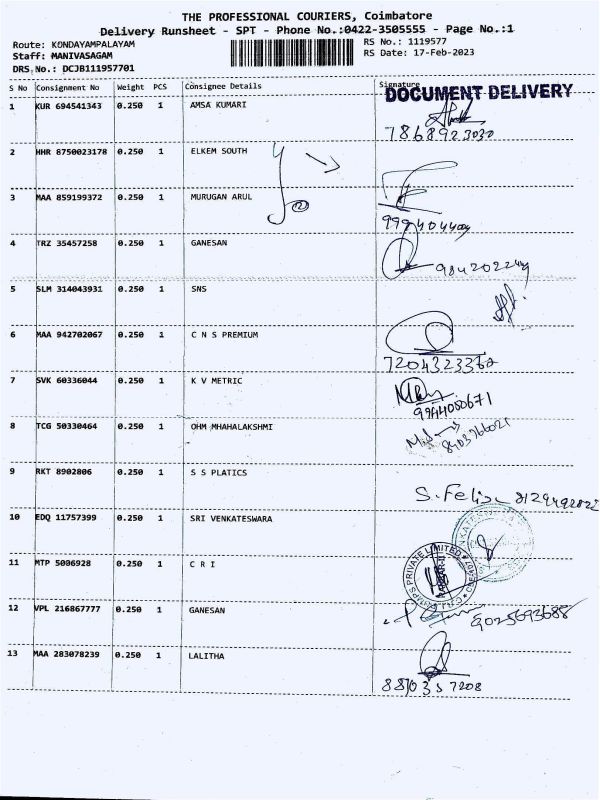 THE PROFESSIONAL COURIERS, Coimbatore
Delivery Runsheet - SPT - Phone No.:0422-3505555 - Page No.:1
Route: KONDAYAMPALAYAM RS No.: 1119577
Staff: MANIVASAGAM RS Date: 17-Feb-2023
DRS No.: DCJB111957701
S No Consignment No Weight PCS Consignee Details Signature
DOCUMENT DELIVERY
1 KUR 694541343 0.250 1 AMSA KUMARI
7868923030
2 HHR 8750023178 0.250 1 ELKEM SOUTH
3 MAA 859199372 0.250 1 MURUGAN ARUL
4 TRZ 35457258 0.250 1 GANESAN
5 SLM 314043931 0.250 1 SNS
6 MAA 942702067 0.250 1 C N S PREMIUM
7204323362
7 SVK 60336044 0.250 1 K V METRIC
9944080671
8 TCG 50330464 0.250 1 OHM MHAHALAKSHMI
9 RKT 8902806 0.250 1 S S PLATICS
S. Felix
10 EDQ 11757399 0.250 1 SRI VENKATESWARA
11 MTP 5006928 0.250 1 C R I
PRIVATE LIMITED
12 VPL 216867777 0.250 1 GANESAN
9025693688
13 MAA 283078239 0.250 1 LALITHA
8810357208